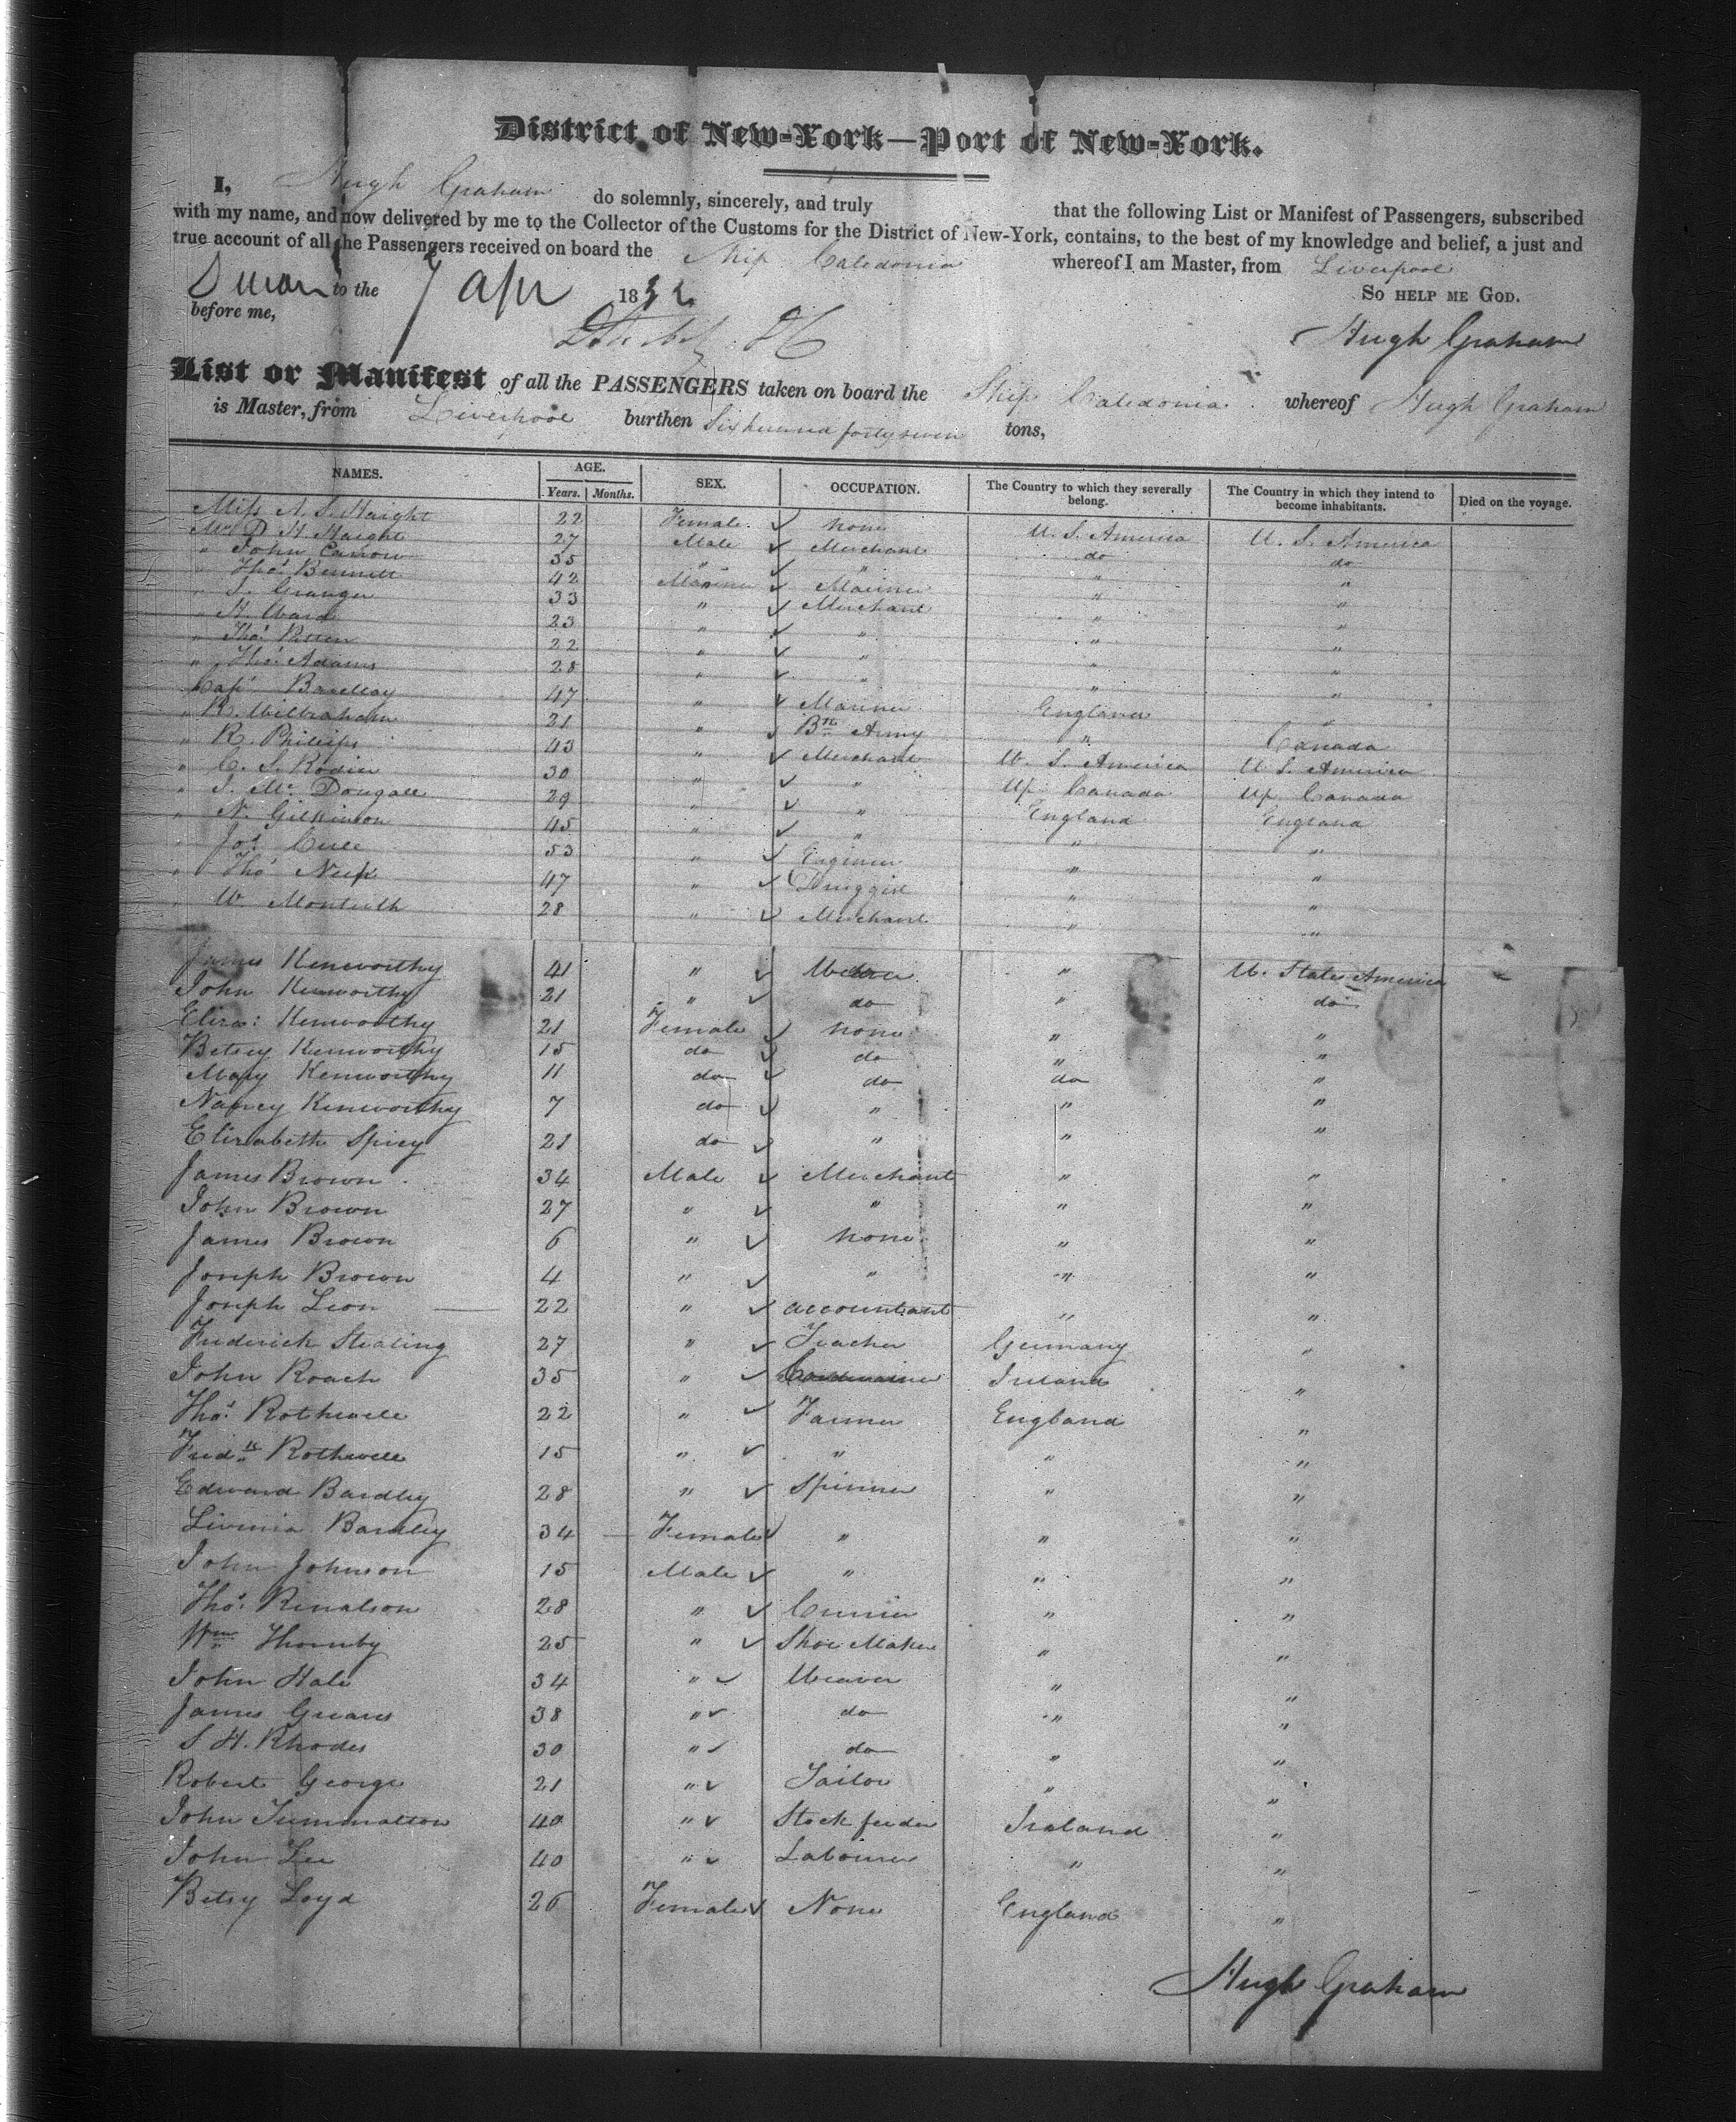 District of New-York—Port of New-York.
I, Hugh Graham do solemnly, sincerely, and truly that the following List or Manifest of Passengers, subscribed
with my name, and now delivered by me to the Collector of the Customs for the District of New-York, contains, to the best of my knowledge and belief, a just and
true account of all the Passengers received on board the Ship Caledonia whereof I am Master, from Liverpool
Sworn to the 7 Apr 1832 So help me God.
before me, Hugh Graham
List or Manifest of all the PASSENGERS taken on board the Ship Caledonia whereof Hugh Graham
is Master, from Liverpool burthen Six hundred forty seven tons,
NAMES. AGE. SEX. OCCUPATION. The Country to which they severally belong. The Country in which they intend to become inhabitants. Died on the voyage.
Years. Months.
Miss A. S. Haight 22 Female. ✓ none U. S. America U. S. America
Mr D. H. Haight 27 Male ✓ Merchant do do
" John Carrow 35 " ✓ " " "
" Thos. Bennett 42 ✓ Mariner " "
" S. Granger 33 " ✓ Merchant " "
" H. Ward 23 " ✓ " " "
" Thos. 22 " ✓ " " "
" Thos. Adams 28 " ✓ " " "
Capt. Barclay 47 " ✓ Mariner England "
" R. Wilbraham 21 " ✓ Bh. Army " Canada
" R. Philips 43 " ✓ Merchant U. S. America U S. America
" C. S. Rodier 30 " ✓ " Up. Canada Up Canada
" J. Mc. Dougall 29 " ✓ " England England
" N. Gilkinson 45 " ✓ " " "
" Jos. 53 " ✓ Engineer " "
" Thos 47 " ✓ Druggist " "
" W. Monteith 28 " ✓ Merchant " "
James Kenworthy 41 " ✓ " U. States America
John Kenworthy 21 " ✓ do " do
Eliza: Kenworthy 21 Female ✓ none " "
Betsey Kenworthy 15 do ✓ do " "
Mary Kenworthy 11 do ✓ do do "
Nancy Kenworthy 7 do ✓ " " "
Elizabeth Spicy 21 do ✓ " " "
James Brown 34 Male ✓ Merchant " "
John Brown 27 " ✓ " " "
James Brown 6 " ✓ none " "
Joseph Brown 4 " ✓ " " "
Joseph Leon 22 " ✓ accountant " "
Frederick Stealing 27 " ✓ Teacher Germany "
John Roach 35 " ✓ Cordwainer Ireland "
Thos. Rothwell 22 " ✓ Farmer England "
Fredk. Rothwell 15 " ✓ " " "
Edward Bardley 28 " ✓ Spinner " "
Livinia Bardley 34 Female ✓ " " "
John Johnson 15 Male ✓ " " "
Thos. Renalson 28 " ✓ Currier " "
Wm Thornby 25 " ✓ Shoe Maker " "
John Hale 34 " ✓ Weaver " "
James Greaves 38 " ✓ do " "
S H. Rhodes 30 " ✓ do " "
Robert George 21 " ✓ Tailor " "
John Tummalson 40 " ✓ Stock feeder Ireland "
John Lee 40 " ✓ Labourer " "
Betsy Loyd 26 Female ✓ None England "
Hugh Graham